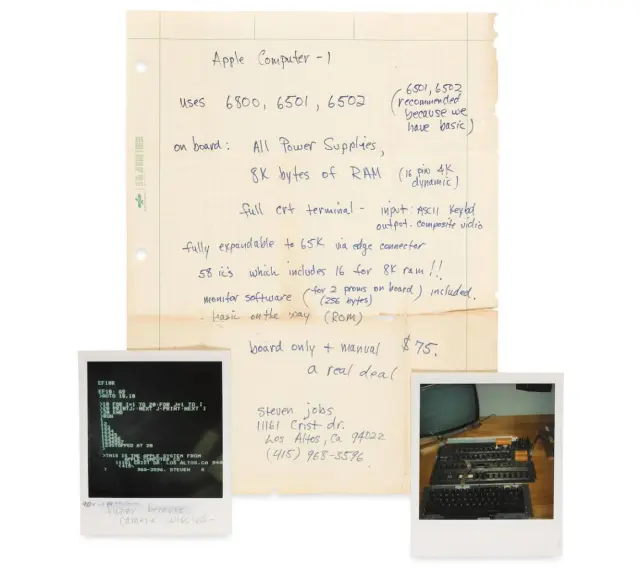 Apple Computer - 1
uses 6800, 6501, 6502
(6501, 6502
recommended
because we
have basic)
on board: All Power Supplies,
8K bytes of RAM (16 pin 4K
dynamic)
full crt terminal - input: ASCII Keybd
output: composite vidio
fully expandable to 65K via edge connector
58 ic's which includes 16 for 8K ram!!
monitor software (for 2 proms on board) included.
(256 bytes)
- basic on the way (ROM)
board only + manual $75.
a real deal
steven jobs
11161 Crist dr.
Los Altos, Ca 94022
(415) 968-3596
>10 FOR I=1 TO 20:FOR J=1 TO I
>30 END
>RUN
STOPPED AT 20
>THIS IS THE APPLE SYSTEM FROM
APPLE COMPUTER CO
11161 CRIST DR. LOS ALTOS,CA
968-3596. STEVEN
fuzzy because
camera